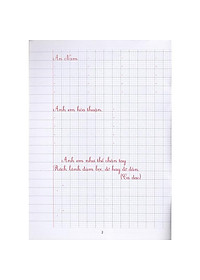 An Nam
Anh em hòa thuận.
Anh em như thể chân tay
Rách lành đùm bọc, dở hay đỡ đần.
(Ca dao)